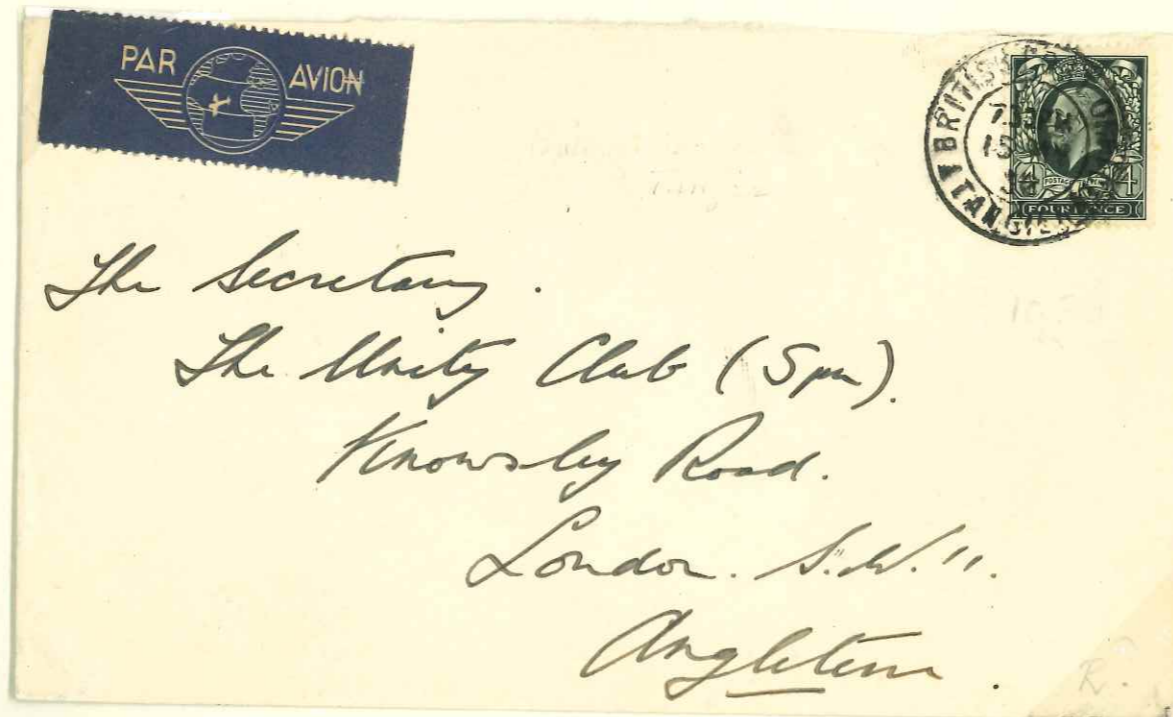 PAR AVION
BRITISH
TANGIER
POSTAGE
4
FOURPENCE
The Secretary.
The Unity Club (Spn).
Knowsley Road.
London. S.W. 11.
Angleterre.
R.